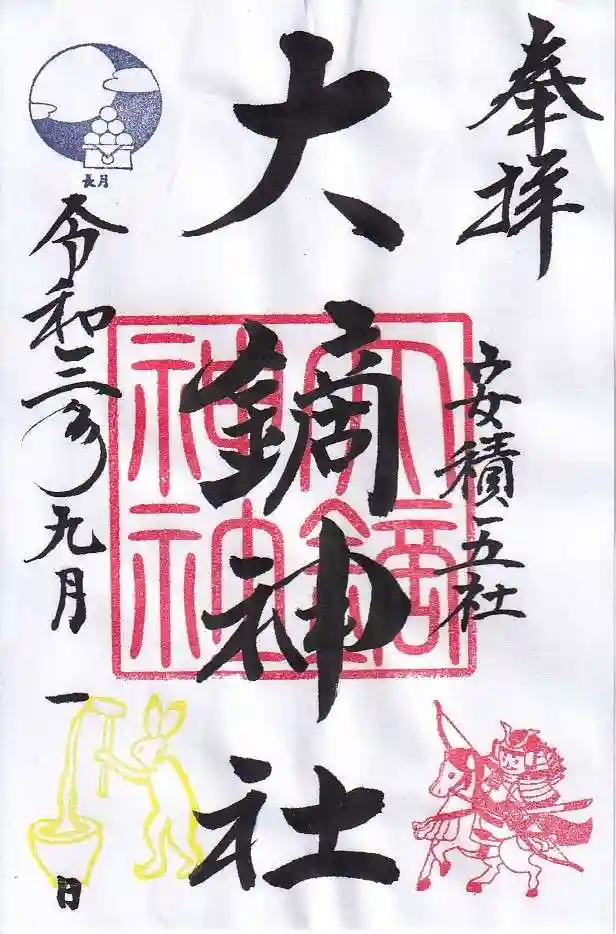 奉拝
安積五社
大鏑神社
大鏑
神社
令和三年九月一日
長月